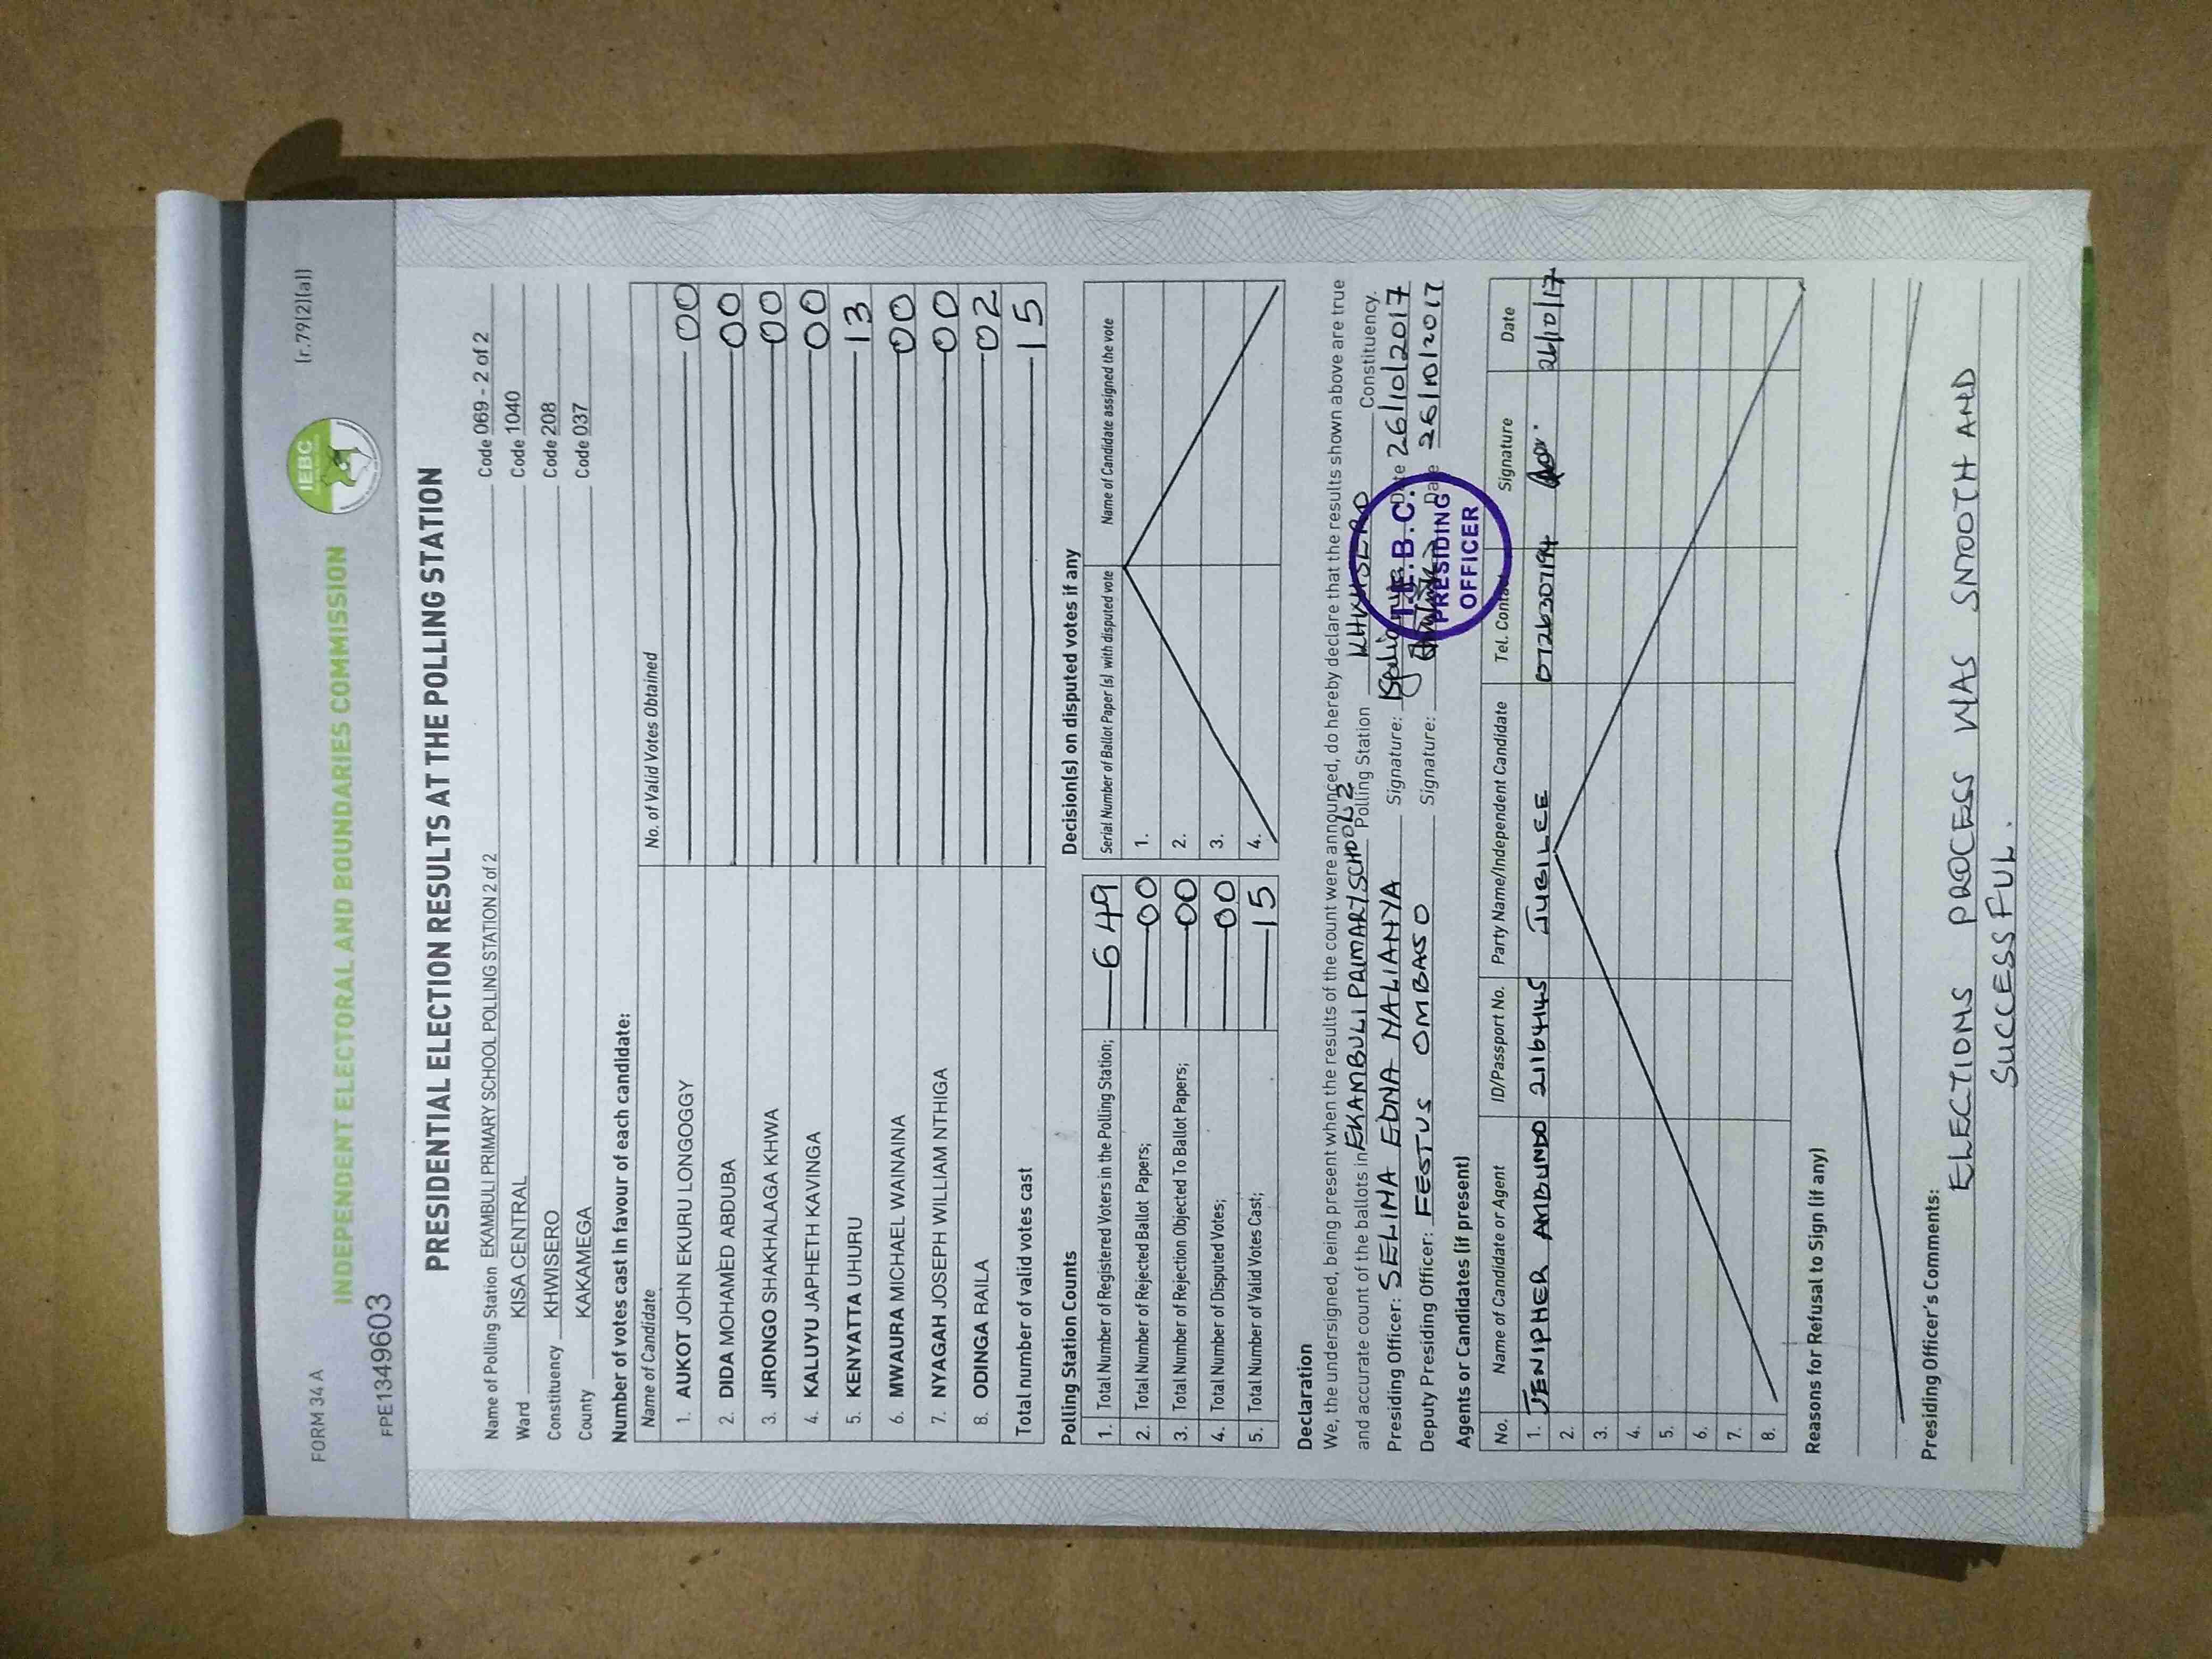 FORM 34 A
[r.79(2)(a)]
IEBC
INDEPENDENT ELECTORAL AND BOUNDARIES COMMISSION
FPE1349603
PRESIDENTIAL ELECTION RESULTS AT THE POLLING STATION
Name of Polling Station EKAMBULI PRIMARY SCHOOL POLLING STATION 2 of 2 Code 069 - 2 of 2
Ward KISA CENTRAL Code 1040
Constituency KHWISERO Code 208
County KAKAMEGA Code 037
Number of votes cast in favour of each candidate:
Name of Candidate No. of Valid Votes Obtained
1. AUKOT JOHN EKURU LONGOGGY 00
2. DIDA MOHAMED ABDUBA 00
3. JIRONGO SHAKHALAGA KHWA 00
4. KALUYU JAPHETH KAVINGA 00
5. KENYATTA UHURU 13
6. MWAURA MICHAEL WAINAINA 00
7. NYAGAH JOSEPH WILLIAM NTHIGA 00
8. ODINGA RAILA 02
Total number of valid votes cast 15
Polling Station Counts
1. Total Number of Registered Voters in the Polling Station; 649
2. Total Number of Rejected Ballot Papers; 00
3. Total Number of Rejection Objected To Ballot Papers; 00
4. Total Number of Disputed Votes; 00
5. Total Number of Valid Votes Cast; 15
Decision(s) on disputed votes if any
Serial Number of Ballot Paper (s) with disputed vote Name of Candidate assigned the vote
1.
2.
3.
4.
Declaration
We, the undersigned, being present when the results of the count were announced, do hereby declare that the results shown above are true
and accurate count of the ballots in EKAMBULI PRIMARY SCHOOL 2 Polling Station KHWISERO Constituency.
Presiding Officer: SELIMA EDNA NALIANYA Signature: Date 26/10/2017
Deputy Presiding Officer: FESTUS OMBASO Signature: Date 26/10/2017
I.E.B.C.
PRESIDING
OFFICER
Agents or Candidates (if present)
No. Name of Candidate or Agent ID/Passport No. Party Name/Independent Candidate Tel. Contact Signature Date
1. JENIPHER AMBUNDO 21164145 JUBILEE 0726307194 26/10/17
2.
3.
4.
5.
6.
7.
8.
Reasons for Refusal to Sign (if any)
Presiding Officer's Comments:
ELECTIONS PROCESS WAS SMOOTH AND
SUCCESSFUL.